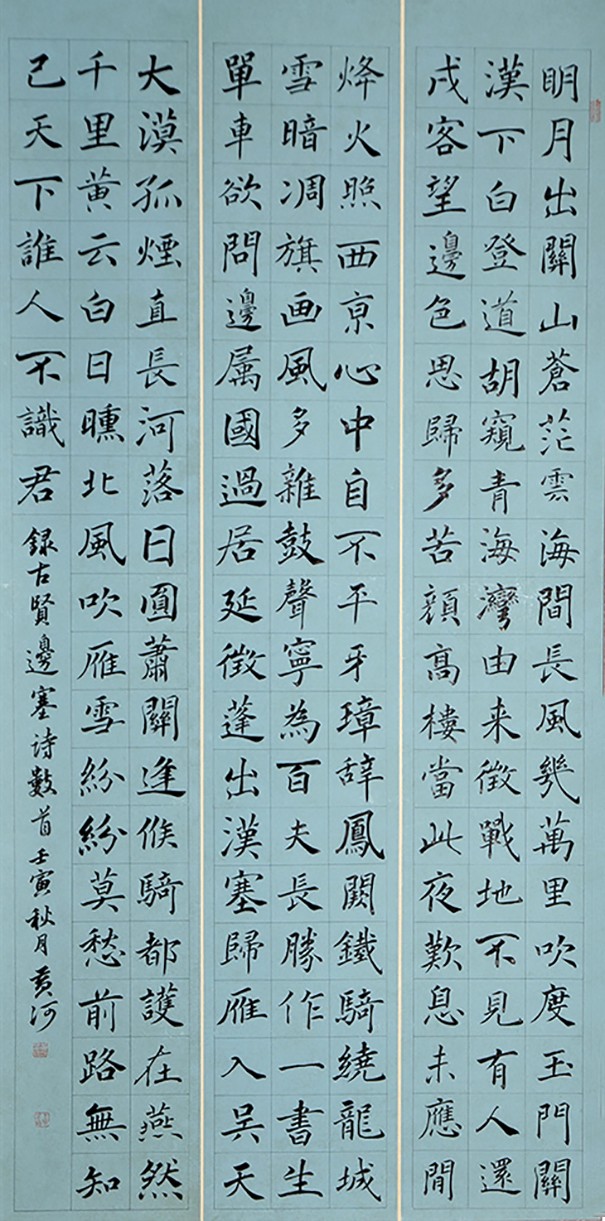 明月出關山蒼茫雲海間長風幾萬里吹度玉門關
漢下白登道胡窺青海灣由来徵戰地不見有人還
戍客望邊色思歸多苦顔高樓當此夜歎息未應閒
烽火照西亰心中自不平牙璋辞鳳闕鐵騎繞龍城
雪暗凋旗画風多雜鼓聲寧為百夫長勝作一書生
單車欲問邊属國過居延徵蓬出漢塞歸雁入吴天
大漠孤煙直長河落日圓蕭關逢候騎都護在燕然
千里黄云白日曛北風吹雁雪紛紛莫愁前路無知
己天下誰人不識君
録古賢邊塞诗數首壬寅秋月黄河